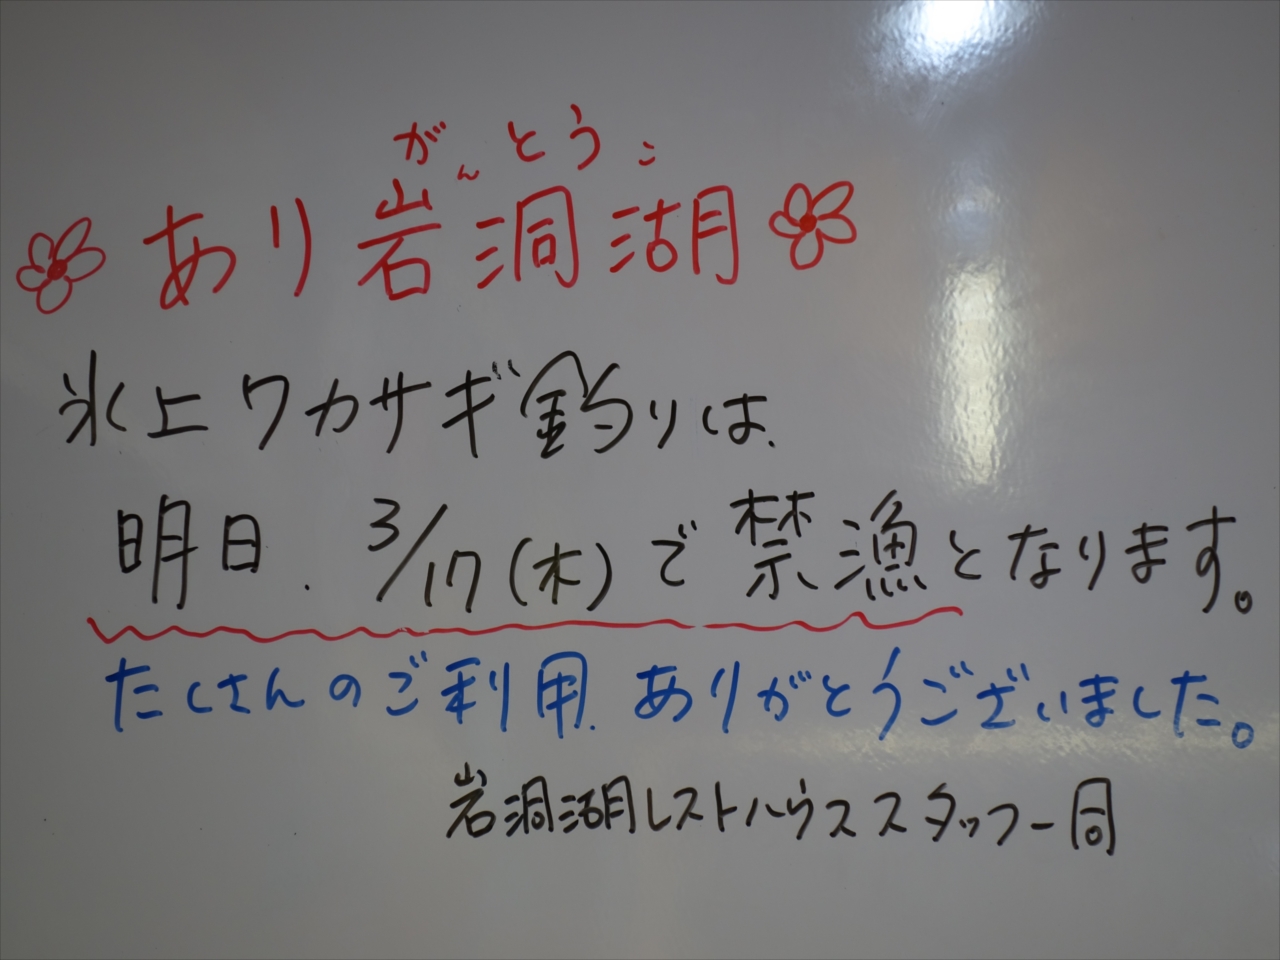 がんとうこ
あり岩洞湖
氷上ワカサギ釣りは、
明日. 3/17(木)で禁漁となります。
たくさんのご利用、ありがとうございました。
岩洞湖レストハウススタッフ一同